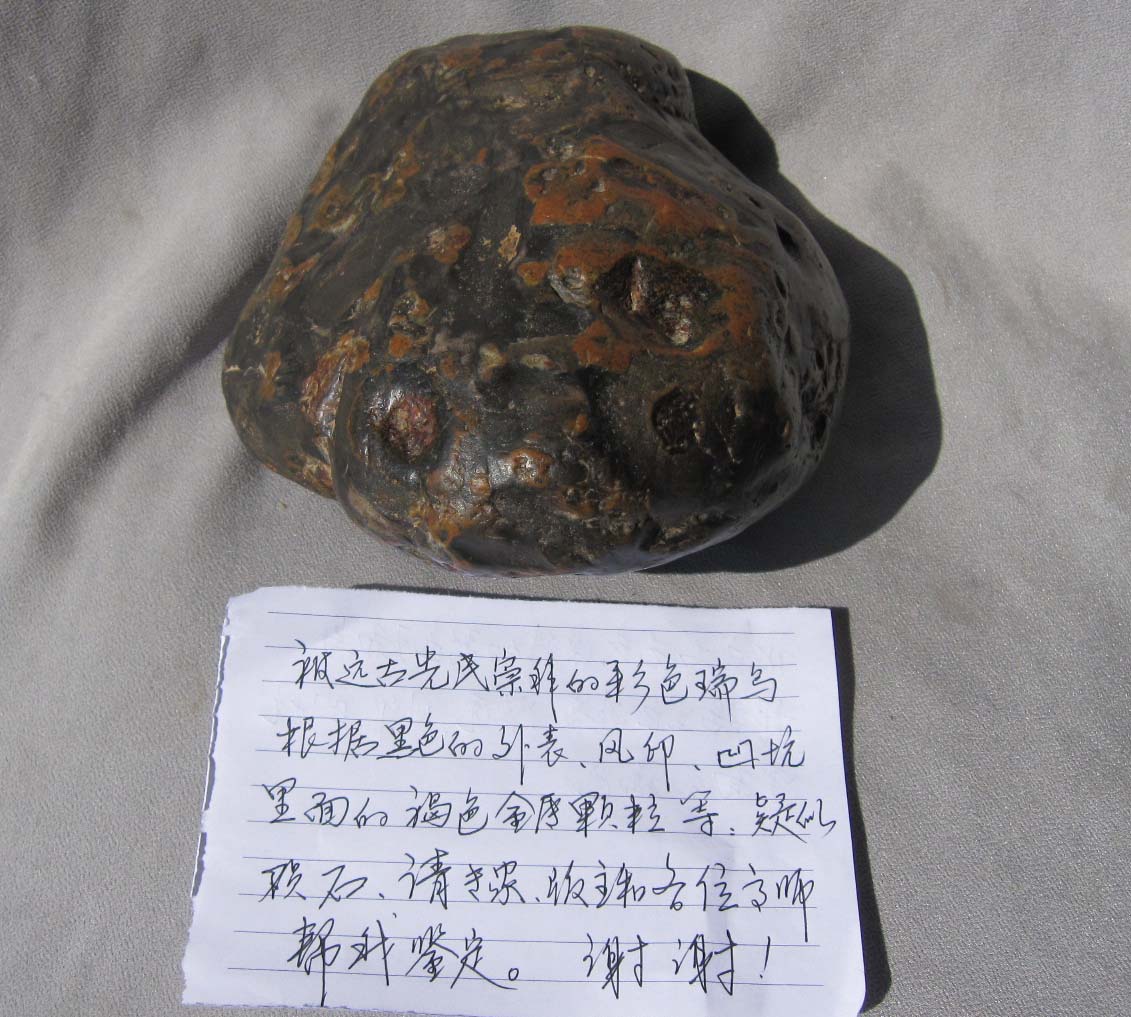 被远古先民崇拜的彩色瑞鸟
根据黑色的外表、风印、凹坑
里面的褐色金属颗粒等、疑似
陨石、请专家、版主和各位高师
帮我鉴定。 谢谢!